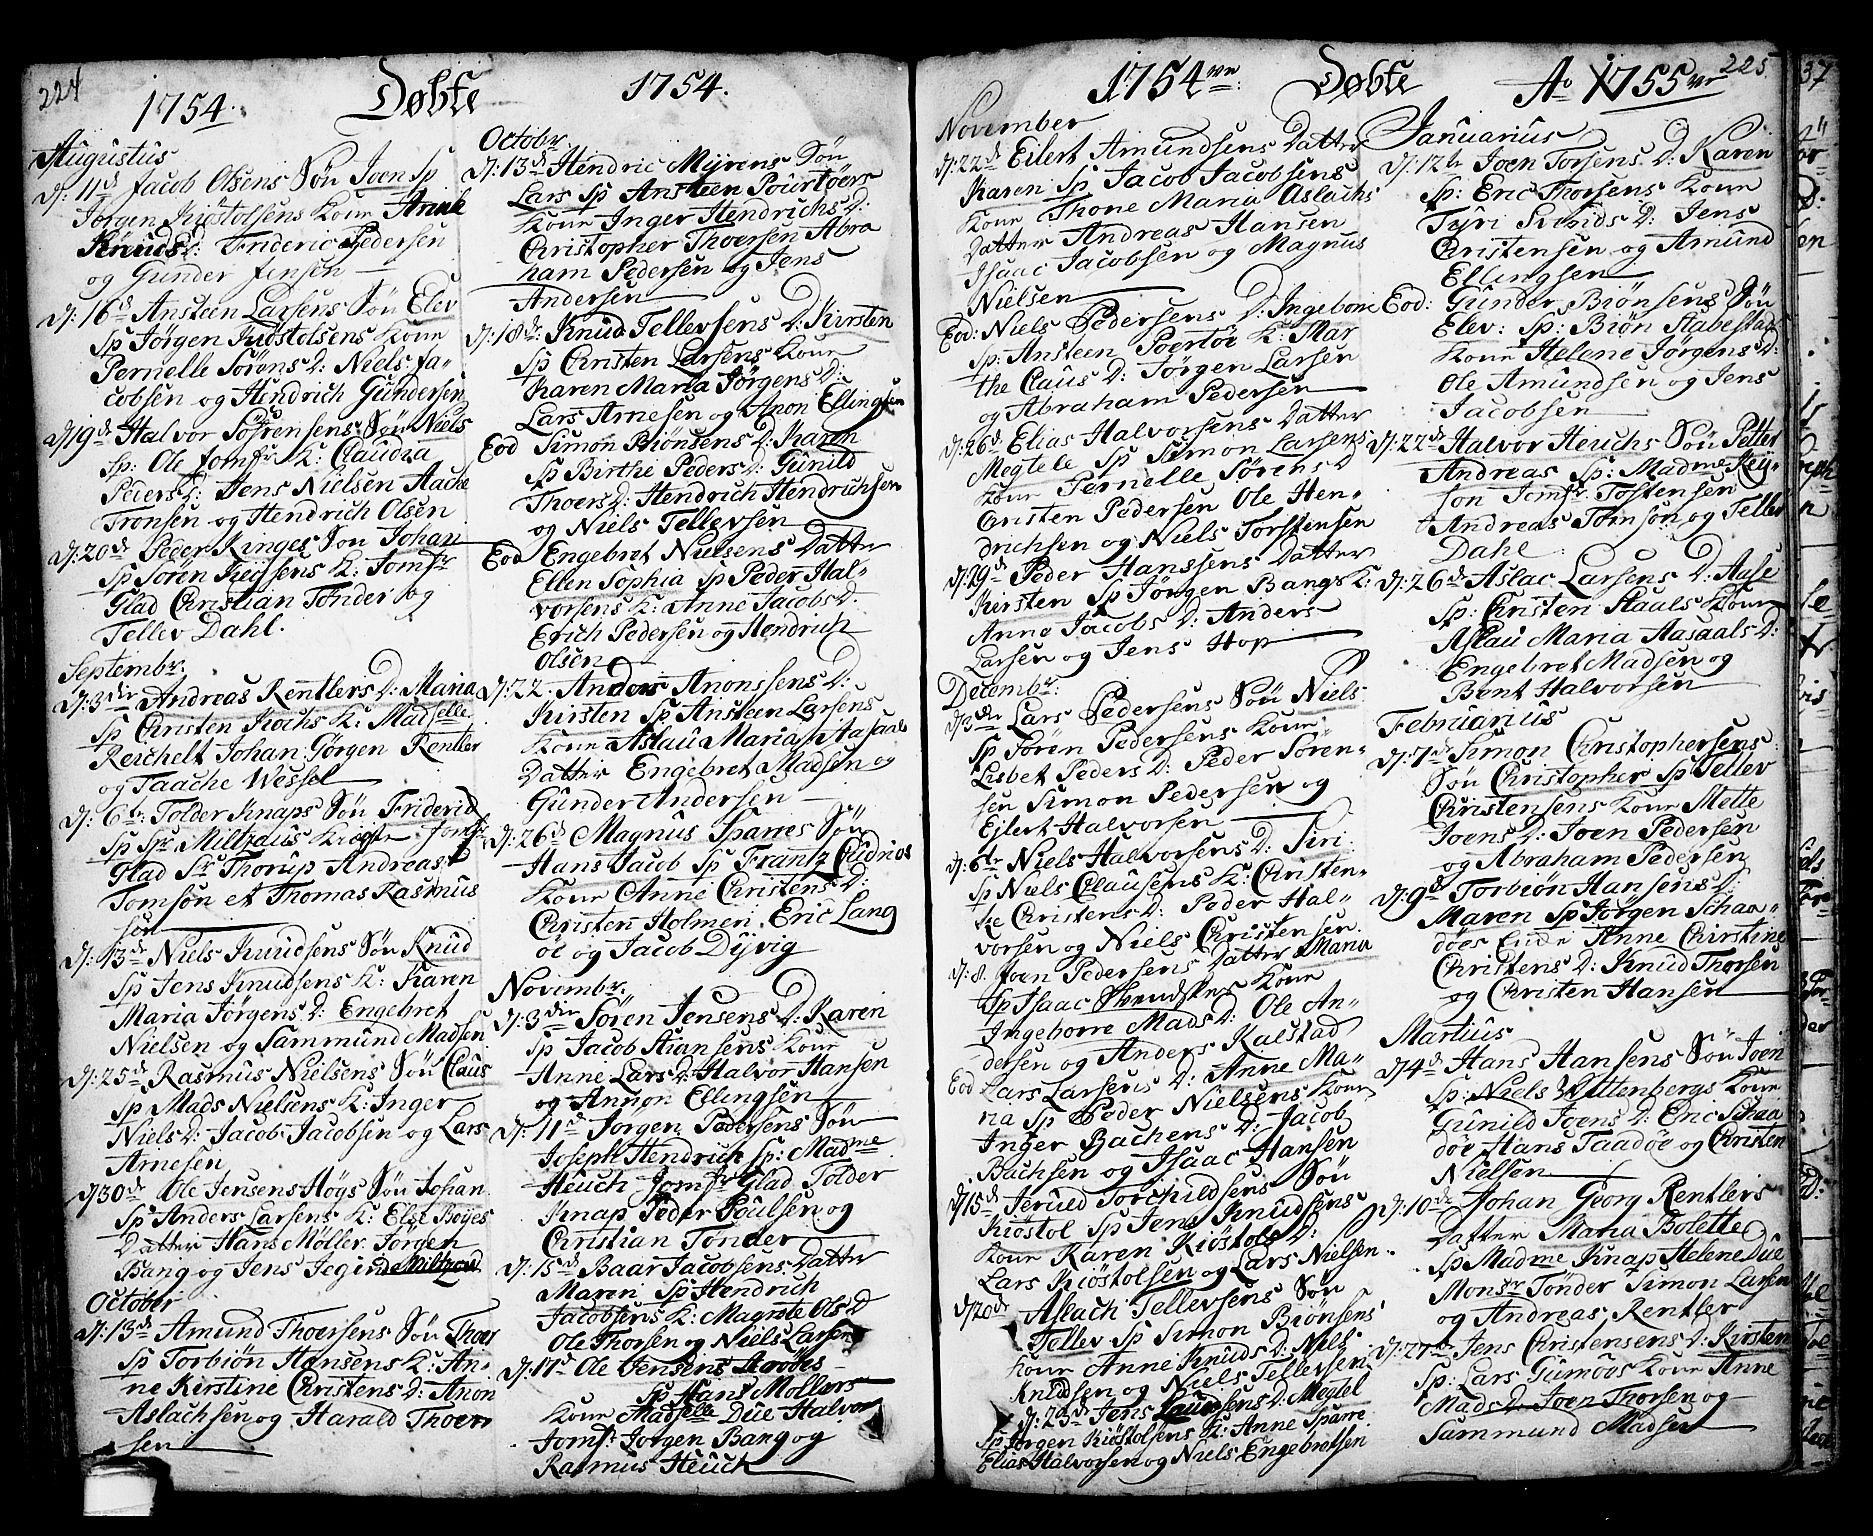 224
1754.
Døbte
1754.
Augustus
d: 11te Jacob Olsens Søn Joen Sp
Jørgen Kiøstolsens Kone Anne
Knuds D: Frideric Pedersen
og Gunder Jensen
d: 16d Ansteen Larsens Søn Elev
Sp Jørgen Kiøstolsens Kone
Pernelle Sørens D: Niels Ja-
cobsen og Hendrich Gundersen
d 19d Halvor Sørensens Søn Niels
Sp: Ole Jomfr K: Claudia
Peders D: Jens Nielsen Aache
Tronsen og Hendrich Olsen
d: 20de Peder Ringes Søn Johan
Sp Søren Keysens K: Jomfr
Glad Christian Tønder og
Tellev Dahl.
Septembr.
d: 3die Andreas Rentlers D: Maria
Sp Christen Kochs K: Madselle
Reichelt Johan Gørgen Rentler
og Taache Wessel
d: 6te Tolder Knaps Søn Friderich
Sp Sr Miltzaus Kieste Jomfr
Glad Sr Thorup Andreas
Tomsøn et Thomas Rasmus
sen
d: 13de Niels Knudsens Søn Knud
Sp Jens Knudsens K: Karen
Maria Jørgens D: Engebret
Nielsen og Sammund Madsen
d: 25de Rasmus Nielsens Søn Claus
Sp Mads Nielsens K: Inger
Niels D: Jacob Jacobsen og Lars
Arnesen
d 30de Ole Jensens Høgs Søn Johan
Sp Anders Larsens K: Else Boyes
Datter Hans Møller Jørgen
Bang og Jens Jegind Miltzou
October
d: 13d Amund Thoersens Søn Thoer
Sp Torbiøn Hansens K: An-
ne Kirstine Christens D: Anon
Aslachsen og Harald Thoer
sen
Octobr.
d: 13de Hendric Myrens Søn
Lars Sp Ansteen Pourtøers
Kone Inger Hendrichs D:
Christopher Thoersen Abra
ham Pedersen og Jens
Andersen
d: 18de Knud Tellevsens D: Kirsten
Sp Christen Larsens Kone
Karen Maria Jørgens D:
Lars Arnesen og Anon Ellingsen
Eod Simon Biønsens D: Karen
Sp Birthe Peders D: Gunild
Thoers D: Hendrich Hendrichsen
og Niels Tellevsen
Eod Engebret Nielsens Datter
Ellen Sophia Sp Peder Hal-
vorsens K: Anne Jacobs D:
Erich Pedersen og Hendrich
Olsen
d: 22. Anders Anonssens D:
Kirsten Sp Ansteen Larsens
Kone Aslau Maria Aasauls
Datter Engebret Madsen og
Gunder Andersen
d: 26d Magnus Sparres Søn
Hans Jacob Sp Frantz
Kone Anne Christens D:
Christen Holmen, Eric Lang
øe og Jacob Dyvig
Novembr.
d: 3die Søren Jensens D: Karen
Sp Jacob Stiansens Kone
Anne Lars D: Halvor Hansen
og Annon Ellingsen
d: 11d Jørgen Pedersens Søn
Joseph Hendrich Sp: Madme
Heuch Jomfr Glad Tolder
Knap Peder Poulsen og
Christian Tønder
d: 15d Baar Jacobsens Datter
Maren Sp Hendrich
Jacobsens K: Magrete Ols D
Ole Thorsen og Niels Larsen
d: 17d Ole Jensens
Sp Hans Møllers
Kone Madselle Due Halvor
Jomfr Jørgen Bang og
Rasmus Heuch
1754ve
Døbte
Ao 1755ve
225
November
d: 22d Eilert Amundsens Datter
Karen Sp Jacob Jacobsens
Kone Thone Maria Aslachs
Datter Andreas Hansen
Isaac Jacobsen og Magnus
Nielsen
Eod: Niels Pedersens D: Ingebor
Sp: Ansteen Poertøe K: Mar
the Claus D: Jørgen Larsen
og Abraham Pedersen
d: 26d Elias Halvorsens Datter
Megtele Sp Simon Larsens
Kone Pernelle Sørens D
Christen Pedersen Ole Hen-
drichsen og Niels Torstensen
d: 29d Peder Hanssens Datter
Kirsten Sp Jørgen Bangs K:
Anne Jacobs D: Anders
Larsen og Jens Hop
Decembr:
d 3die Lars Pedersens Søn Niels
Sp Søren Pedersens Kone
Lisbet Peders D: Peder Søren-
sen Simon Pedersen og
Ejlert Halvorsen
d: 6te Niels Halvorsens D: Siri
Sp Niels Clausens K: Christen-
se Christens D: Peder Hal-
vorsen og Niels Christensen
d: 8. Joen Pedersens Datter Maria
Sp Isaac Svendskes Kone
Ingeborre Mads D: Ole An-
dersen og Anders Kalstad
Eod Lars Larsens D: Anne Ma-
na Sp Peder Nielsens Kone
Inger Bachens D: Jacob
Bachsen og Isaac Hansen
d 15d Jerued Torchildsens Søn
Kiøstol Sp Jens Knudsens
Kone Karen Kiøstols D:
Lars Kiøstolsen og Lars Nielsen
d 20de Aslach Tellevsens Søn
Tellev Sp Simon Biønsens
Kone Anne Knuds D: Niels
Knudsen og Niels Tellevsen
d: 23d Jens D: Megtel
Sp Jørgen Kiøstolsens K: Anne Sparre
Elias Halvorsen og Niels Engebretsen
Januarius
d: 12te Joen Torsens D: Karen
Sp: Eric Thorsens Kone
Tyri Svends D: Jens
Christensen og Amund
Ellingsen
Eod: Gunder Biønsens Søn
Elev: Sp: Biøn Stabestads
Kone Helene Jørgens D:
Ole Amundsen og Jens
Jacobsen
d: 22de Halvor Heuchs Søn Petter
Andreas Sp: Madme Key-
son Jomfr Tostensen
Andreas Tomsøn og Tellev
Dahl
d: 26de Aslac Larsens D: Aase
Sp: Christen Staals Kone
Aslau Maria Aasaals D:
Engebret Madsen og
Bent Halvorsen
Februarius
d: 7de Simon Christophersens
Søn Christopher Sp Tellev
Christensens Kone Mette
Joens D: Joen Pedersen
og Abraham Pedersen
d: 9d Torbiøn Hansens D:
Maren Sp Jørgen Schaa-
døes Enke Anne Chirstine
Christens D: Knud Thorsen
og Christen Hansen
Martius
d 4de Hans Hansens Søn Joen
Sp: Niels Wittenbergs Kone
Gunild Joens D: Eric Schaa
døe Hans Taadøe og Christen
Nielsen
d: 10de Johan Georg Rentlers
Datter Maria Bolette
Sp Madme Knap Helene Due
Monsr Tønder Simon Larsen
og Andreas Rentler
d: 27de Jens Christensens D: Kirsten
Sp: Lars Gumøes Kone Anne
Mads D: Joen Thorsen og
Sammund Madsen
37